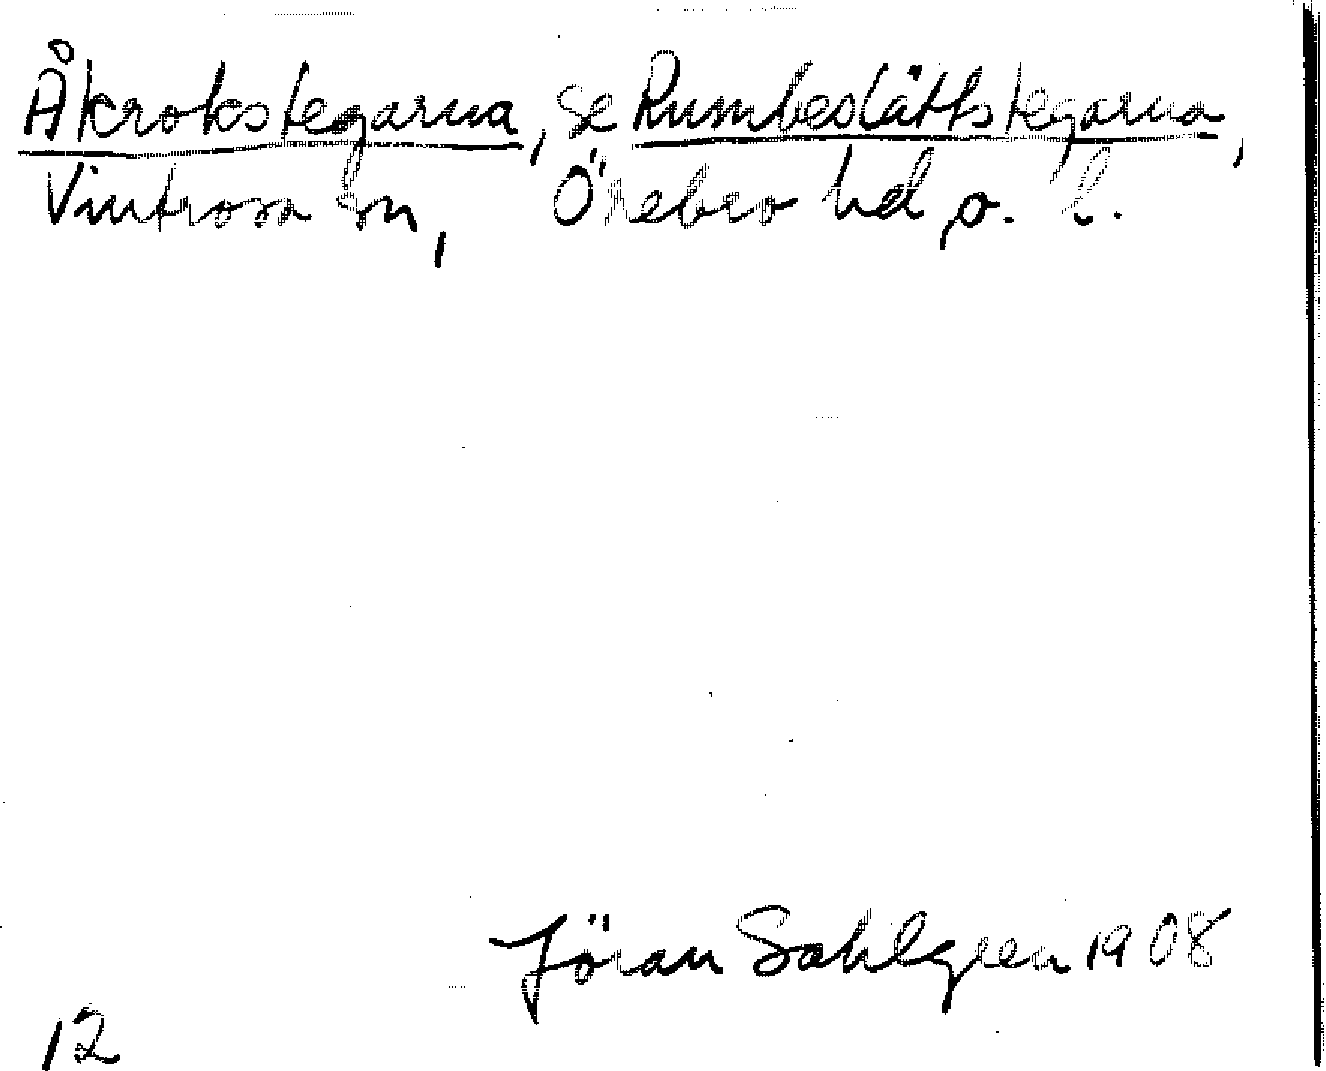 Åkrokstegarna, se Rumbeslättstegarna,
Vintrosa sn, Örebro hd, ö. l.
Jöran Sahlgren 1908
12